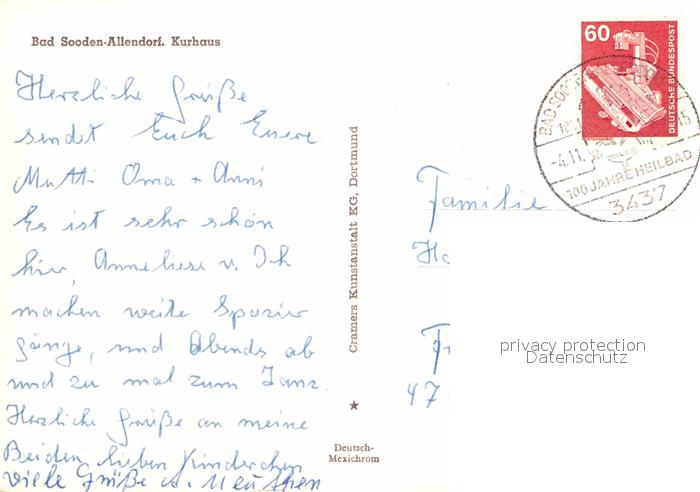 Bad Sooden-Allendorf. Kurhaus
Herzliche Grüße
sendet Euch Euere
Mutti Oma + Anni
Es ist sehr schön
hier, Anneliese u. Ich
machen weite Spazier
gänge, und Abends ab
und zu mal zum Tanz
Herzliche Grüße an meine
Beiden lieben Kinderchen
viele Grüße
Cramers Kunstanstalt KG, Dortmund
Deutsch-
Mexichrom
60
DEUTSCHE BUNDESPOST
BAD SOODEN
-4.11.
100 JAHRE HEILBAD
3437
Familie
47
privacy protection
Datenschutz